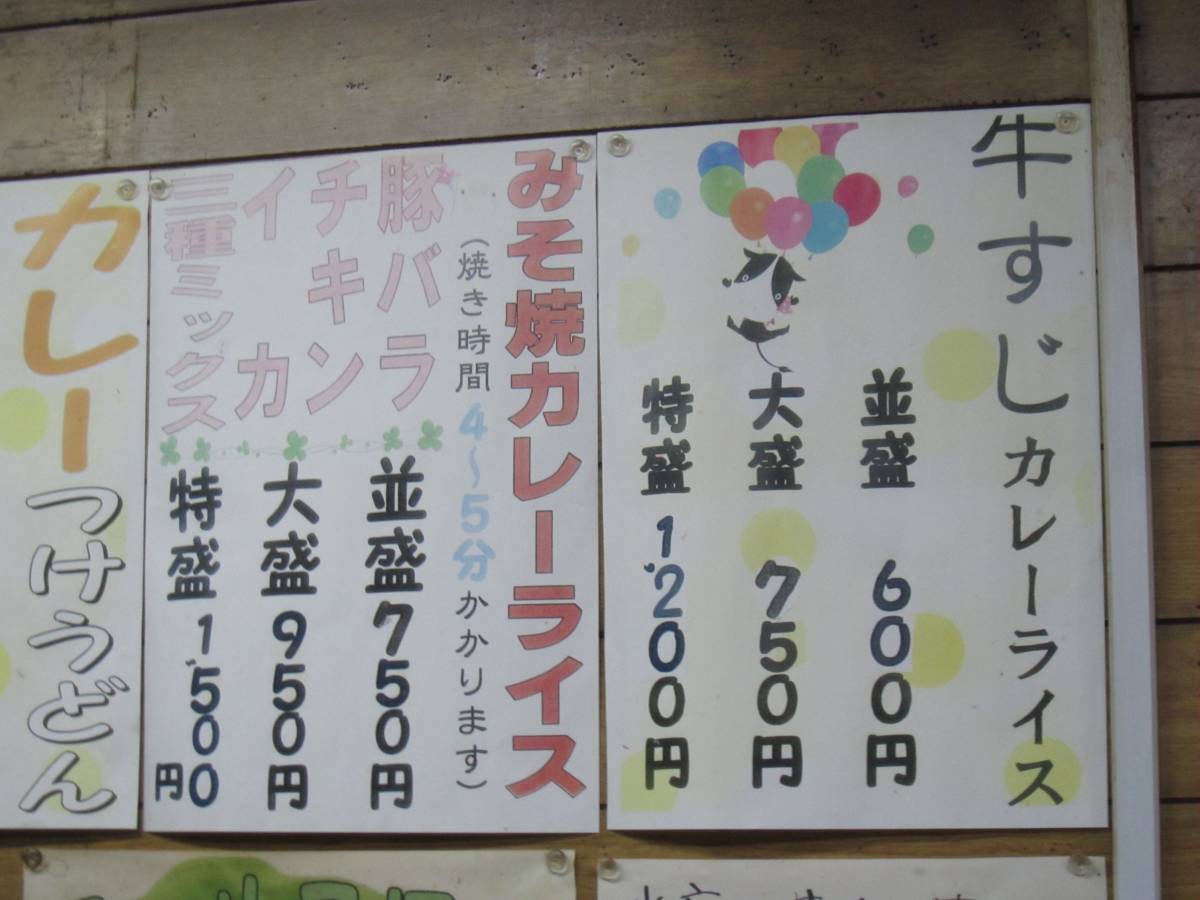 牛すじカレーライス
並盛 600円
大盛 750円
特盛 1,200円
みそ焼カレーライス
(焼き時間4～5分かかります)
豚バラ
チキン
イカ
三種ミックス
並盛750円
大盛950円
特盛1,500円
カレーつけうどん